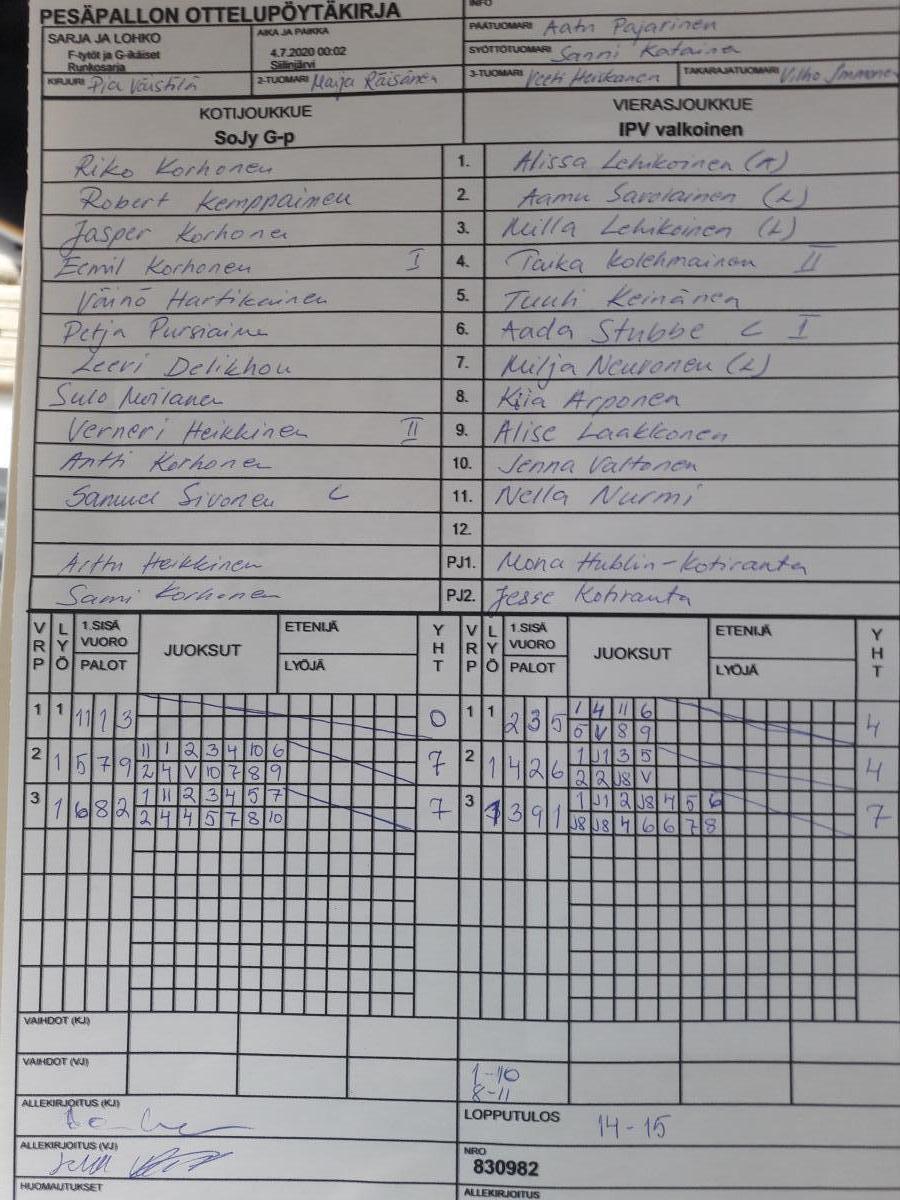 PESÄPALLON OTTELUPÖYTÄKIRJA
INFO
SARJA JA LOHKO
F-tytöt ja G-ikäiset
Runkosarja
AIKA JA PAIKKA
4.7.2020 00:02
Siilinjärvi
PÄÄTUOMARI Aatu Pajarinen
SYÖTTÖTUOMARI Sanni Kataina
KIRJURI Pia Väistilä 2-TUOMARI Maija Räisänen 3-TUOMARI Veeti Heiskanen TAKARAJATUOMARI Vilho Immonen
KOTIJOUKKUE VIERASJOUKKUE
SoJy G-p IPV valkoinen
Riko Korhonen 1. Alissa Lehikoinen (A)
Robert Kemppainen 2. Aamu Savolainen (L)
Jasper Korhonen 3. Milla Lehikoinen (L)
Eemil Korhonen I 4. Taika Kolehmainen II
Väinö Hartikainen 5. Tuuli Keinänen
Petja Pursiainen 6. Aada Stubbe C I
Leevi Delikhou 7. Milja Neuvonen (L)
Sulo Moilanen 8. Kiia Arponen
Verneri Heikkinen II 9. Alise Laakkonen
Antti Korhonen 10. Jenna Valtonen
Samuel Sivonen C 11. Nella Nurmi
12.
Arttu Heikkinen PJ1. Mona Hublin-Kotiranta
Sami Korhonen PJ2. Jesse Kotiranta
VRP LYÖ 1.SISÄ VUORO PALOT JUOKSUT ETENIJÄ LYÖJÄ YHT VRP LYÖ 1.SISÄ VUORO PALOT JUOKSUT ETENIJÄ LYÖJÄ YHT
1 1 11 1 3 0 1 1 2 3 5 1 4 11 6 4
5 V 8 9
2 1 5 7 9 11 1 2 3 4 10 6 7 2 1 4 2 6 1 J1 3 5 4
2 4 V 10 7 8 9 2 2 J8 V
3 1 6 8 2 1 11 2 3 4 5 7 7 3 1 3 9 1 1 J1 2 J8 4 5 6 7
2 4 4 5 7 8 10 J8 J8 4 6 6 7 8
VAIHDOT (KJ)
VAIHDOT (VJ)
1-10
8-11
ALLEKIRJOITUS (KJ)
LOPPUTULOS 14-15
ALLEKIRJOITUS (VJ)
NRO
830982
HUOMAUTUKSET
ALLEKIRJOITUS